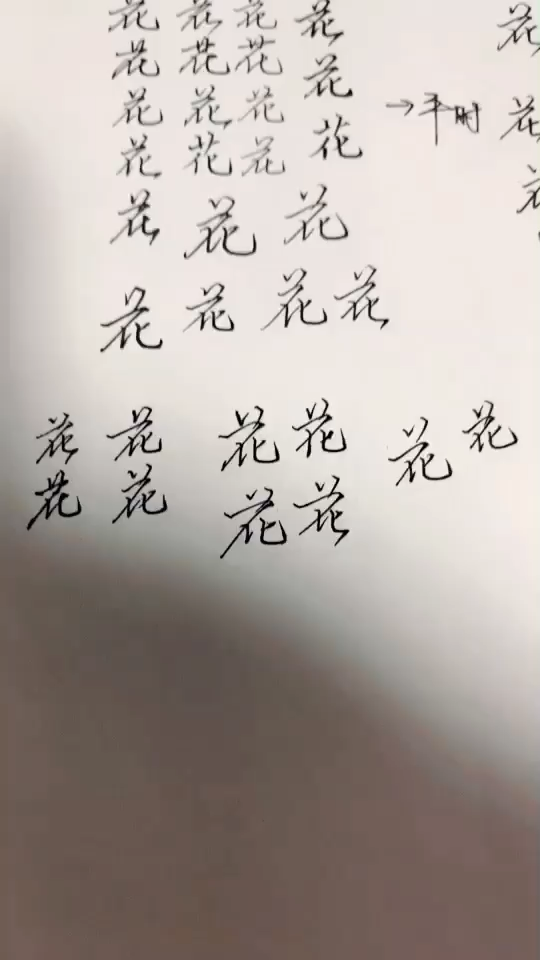 花 花 花 花 花
花 花 花 花
花 花 花 →平时 花
花 花 花 花
花 花 花 花
花 花 花 花
花 花 花 花 花 花
花 花 花 花